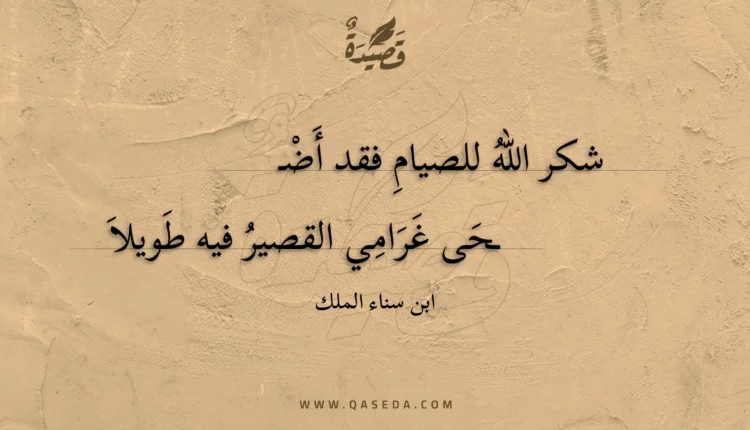 قَصِيدَةٌ
شكر اللهُ للصيامِ فقد أَضْـ
ـحَى غَرَامِي القصيرُ فيه طَويلاَ
ابن سناء الملك
WWW.QASEDA.COM